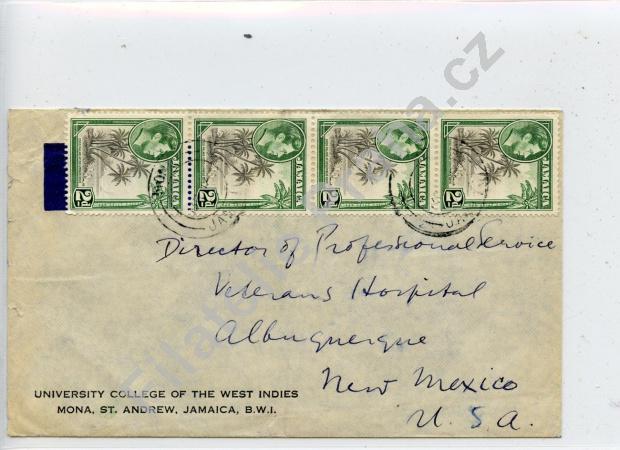 JAMAICA
2D
JAMAICA
2D
JAMAICA
2D
JAMAICA
2D
Director of Professional Service
Veterans Hospital
Albuquerque
New Mexico
U. S. A.
UNIVERSITY COLLEGE OF THE WEST INDIES
MONA, ST. ANDREW, JAMAICA, B.W.I.